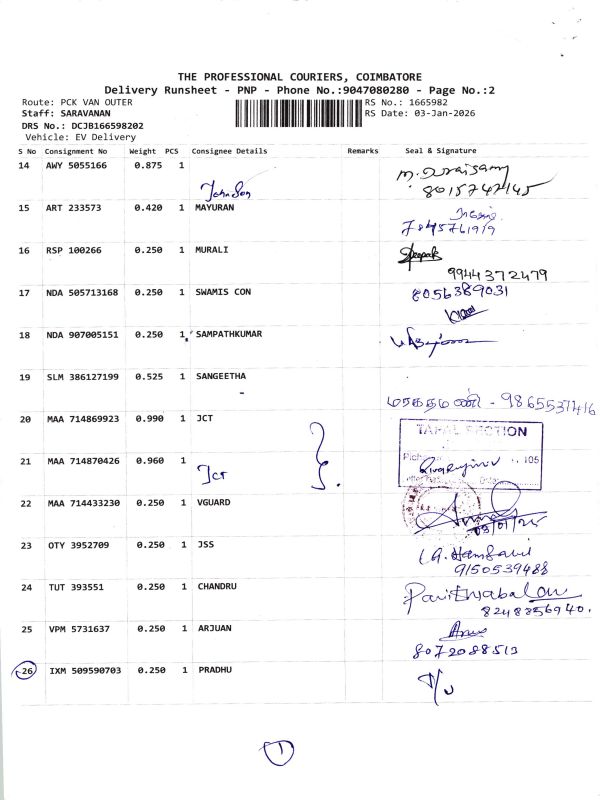 THE PROFESSIONAL COURIERS, COIMBATORE
Delivery Runsheet - PNP - Phone No.:9047080280 - Page No.:2
Route: PCK VAN OUTER
RS No.: 1665982
Staff: SARAVANAN
RS Date: 03-Jan-2026
DRS No.: DCJB166598202
Vehicle: EV Delivery
S No Consignment No Weight PCS Consignee Details Remarks Seal & Signature
14 AWY 5055166 0.875 1
Johnson
8015742145
15 ART 233573 0.420 1 MAYURAN
7845761919
16 RSP 100266 0.250 1 MURALI
Deepak
9944372479
17 NDA 505713168 0.250 1 SWAMIS CON
8056389031
18 NDA 907005151 0.250 1 SAMPATHKUMAR
19 SLM 386127199 0.525 1 SANGEETHA
மரகதமணி - 9865537416
20 MAA 714869923 0.990 1 JCT
TAPAL SECTION
21 MAA 714870426 0.960 1
Jct
105
22 MAA 714433230 0.250 1 VGUARD
23 OTY 3952709 0.250 1 JSS
9150539488
24 TUT 393551 0.250 1 CHANDRU
8248856940.
25 VPM 5731637 0.250 1 ARJUAN
8072088513
26 IXM 509590703 0.250 1 PRADHU
1